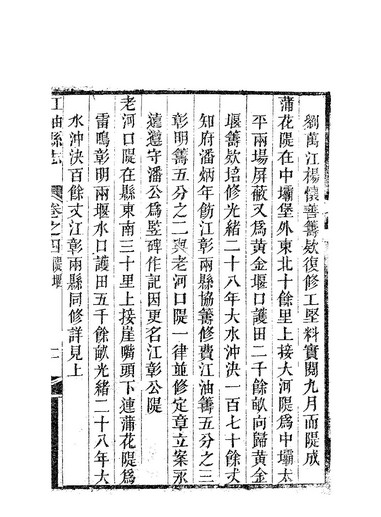 劉萬江楊懷善籌欵復修工堅料實閱九月而隄成
蒲花隄在中壩堡外東北十餘里上接大河隄爲中壩太
平兩場屏蔽又爲黃金堰口護田二千餘畝向歸黃金
堰籌欵培修光緒二十八年大水沖決一百七十餘丈
知府潘炳年飭江彰兩縣協籌修費江油籌五分之三
彰明籌五分之二與老河口隄一律並修定章立案永
遠遵守潘公爲竪碑作記因更名江彰公隄
老河口隄在縣東南三十里上接崖嘴頭下連蒲花隄爲
雷鳴彰明兩堰水口護田五千餘畝光緒二十八年大
水沖決百餘丈江彰兩縣同修詳見上
江油縣志
卷之四隄堰